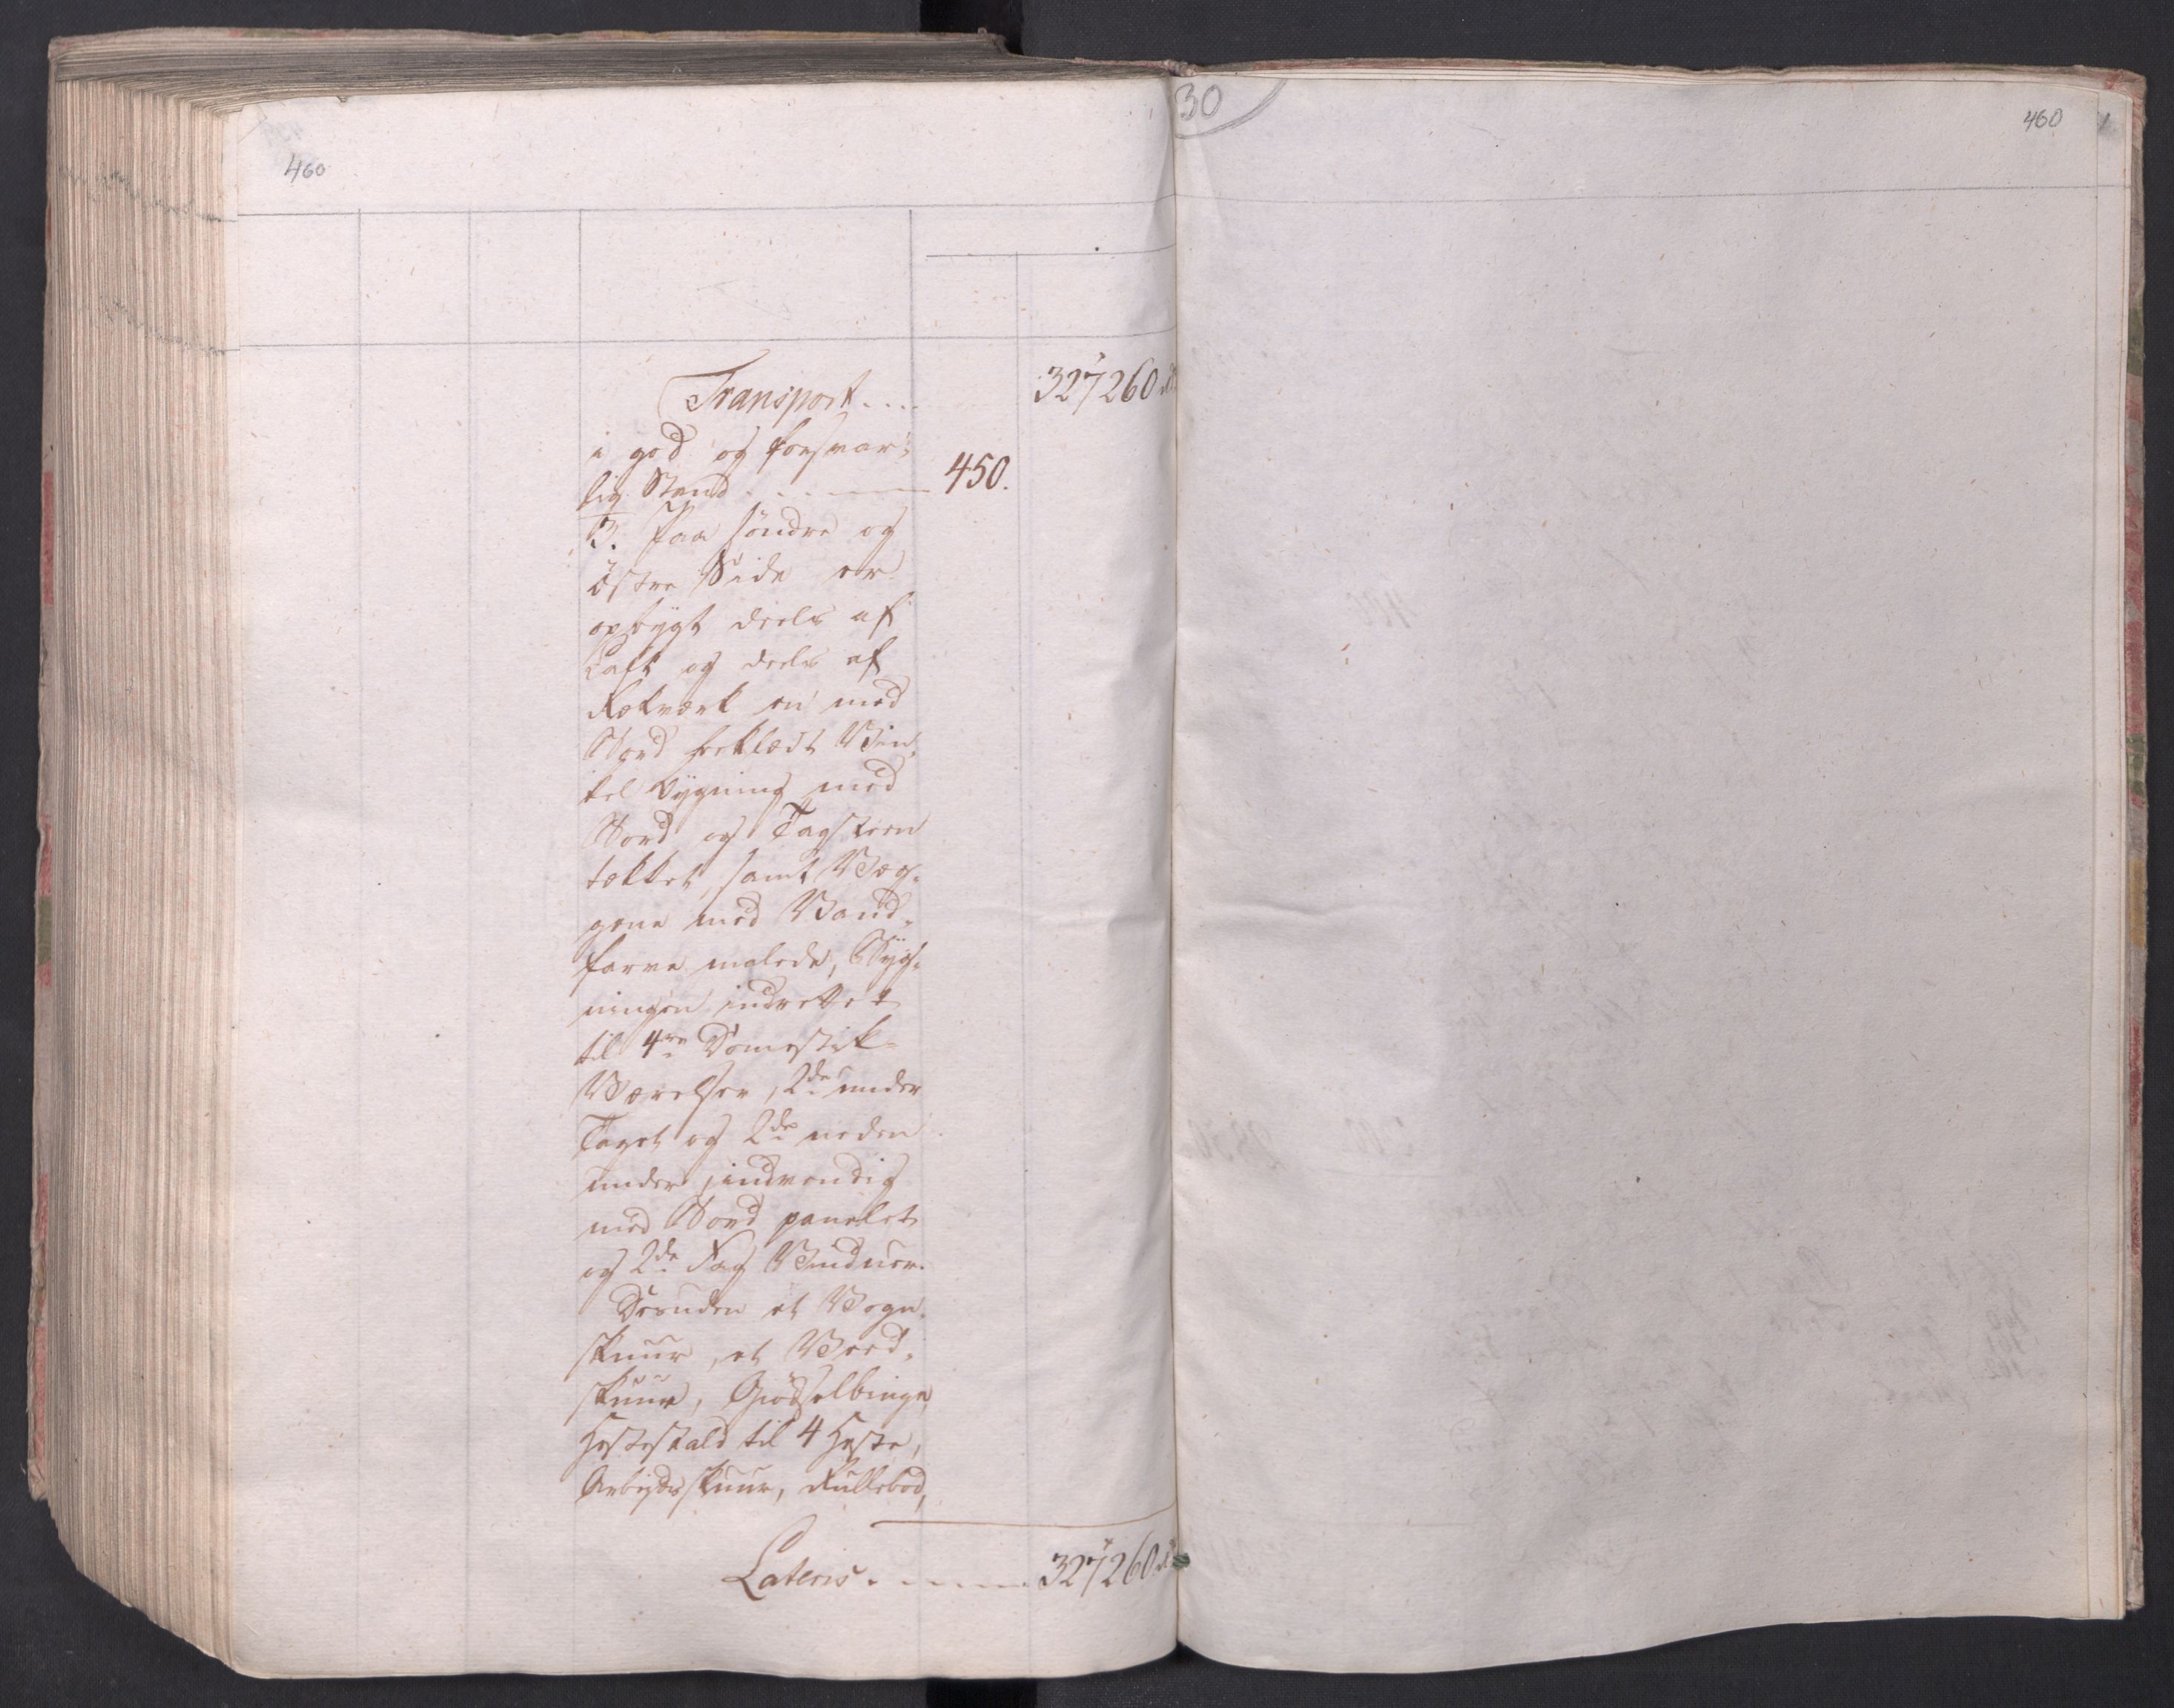 460
30
460
Transport.... 327260 rd
i god og forsvar-
lig Stand.... 450.
3. Paa søndre og
östre Side er
opbygt deels af
Laft og deels af
Rekverk en med
Bord beklædt Vin-
kel Bygning med
Bord og Tagsteen
tækket, samt Væg-
gene med Vand-
farve malede, Byg-
ningen indrettet
til 4re Domestik-
Værelser, 2de under
Taget og 2de neden
under, indvendig
med Bord panelet
og 2de Fag Vinduer.
Desuden et Vogn-
skuur, et Veed-
skuur, Giödselbinge,
Hestestald til 4 Heste,
Arbeydsskuur, Rullebod,
Lateris.... 327260 rd